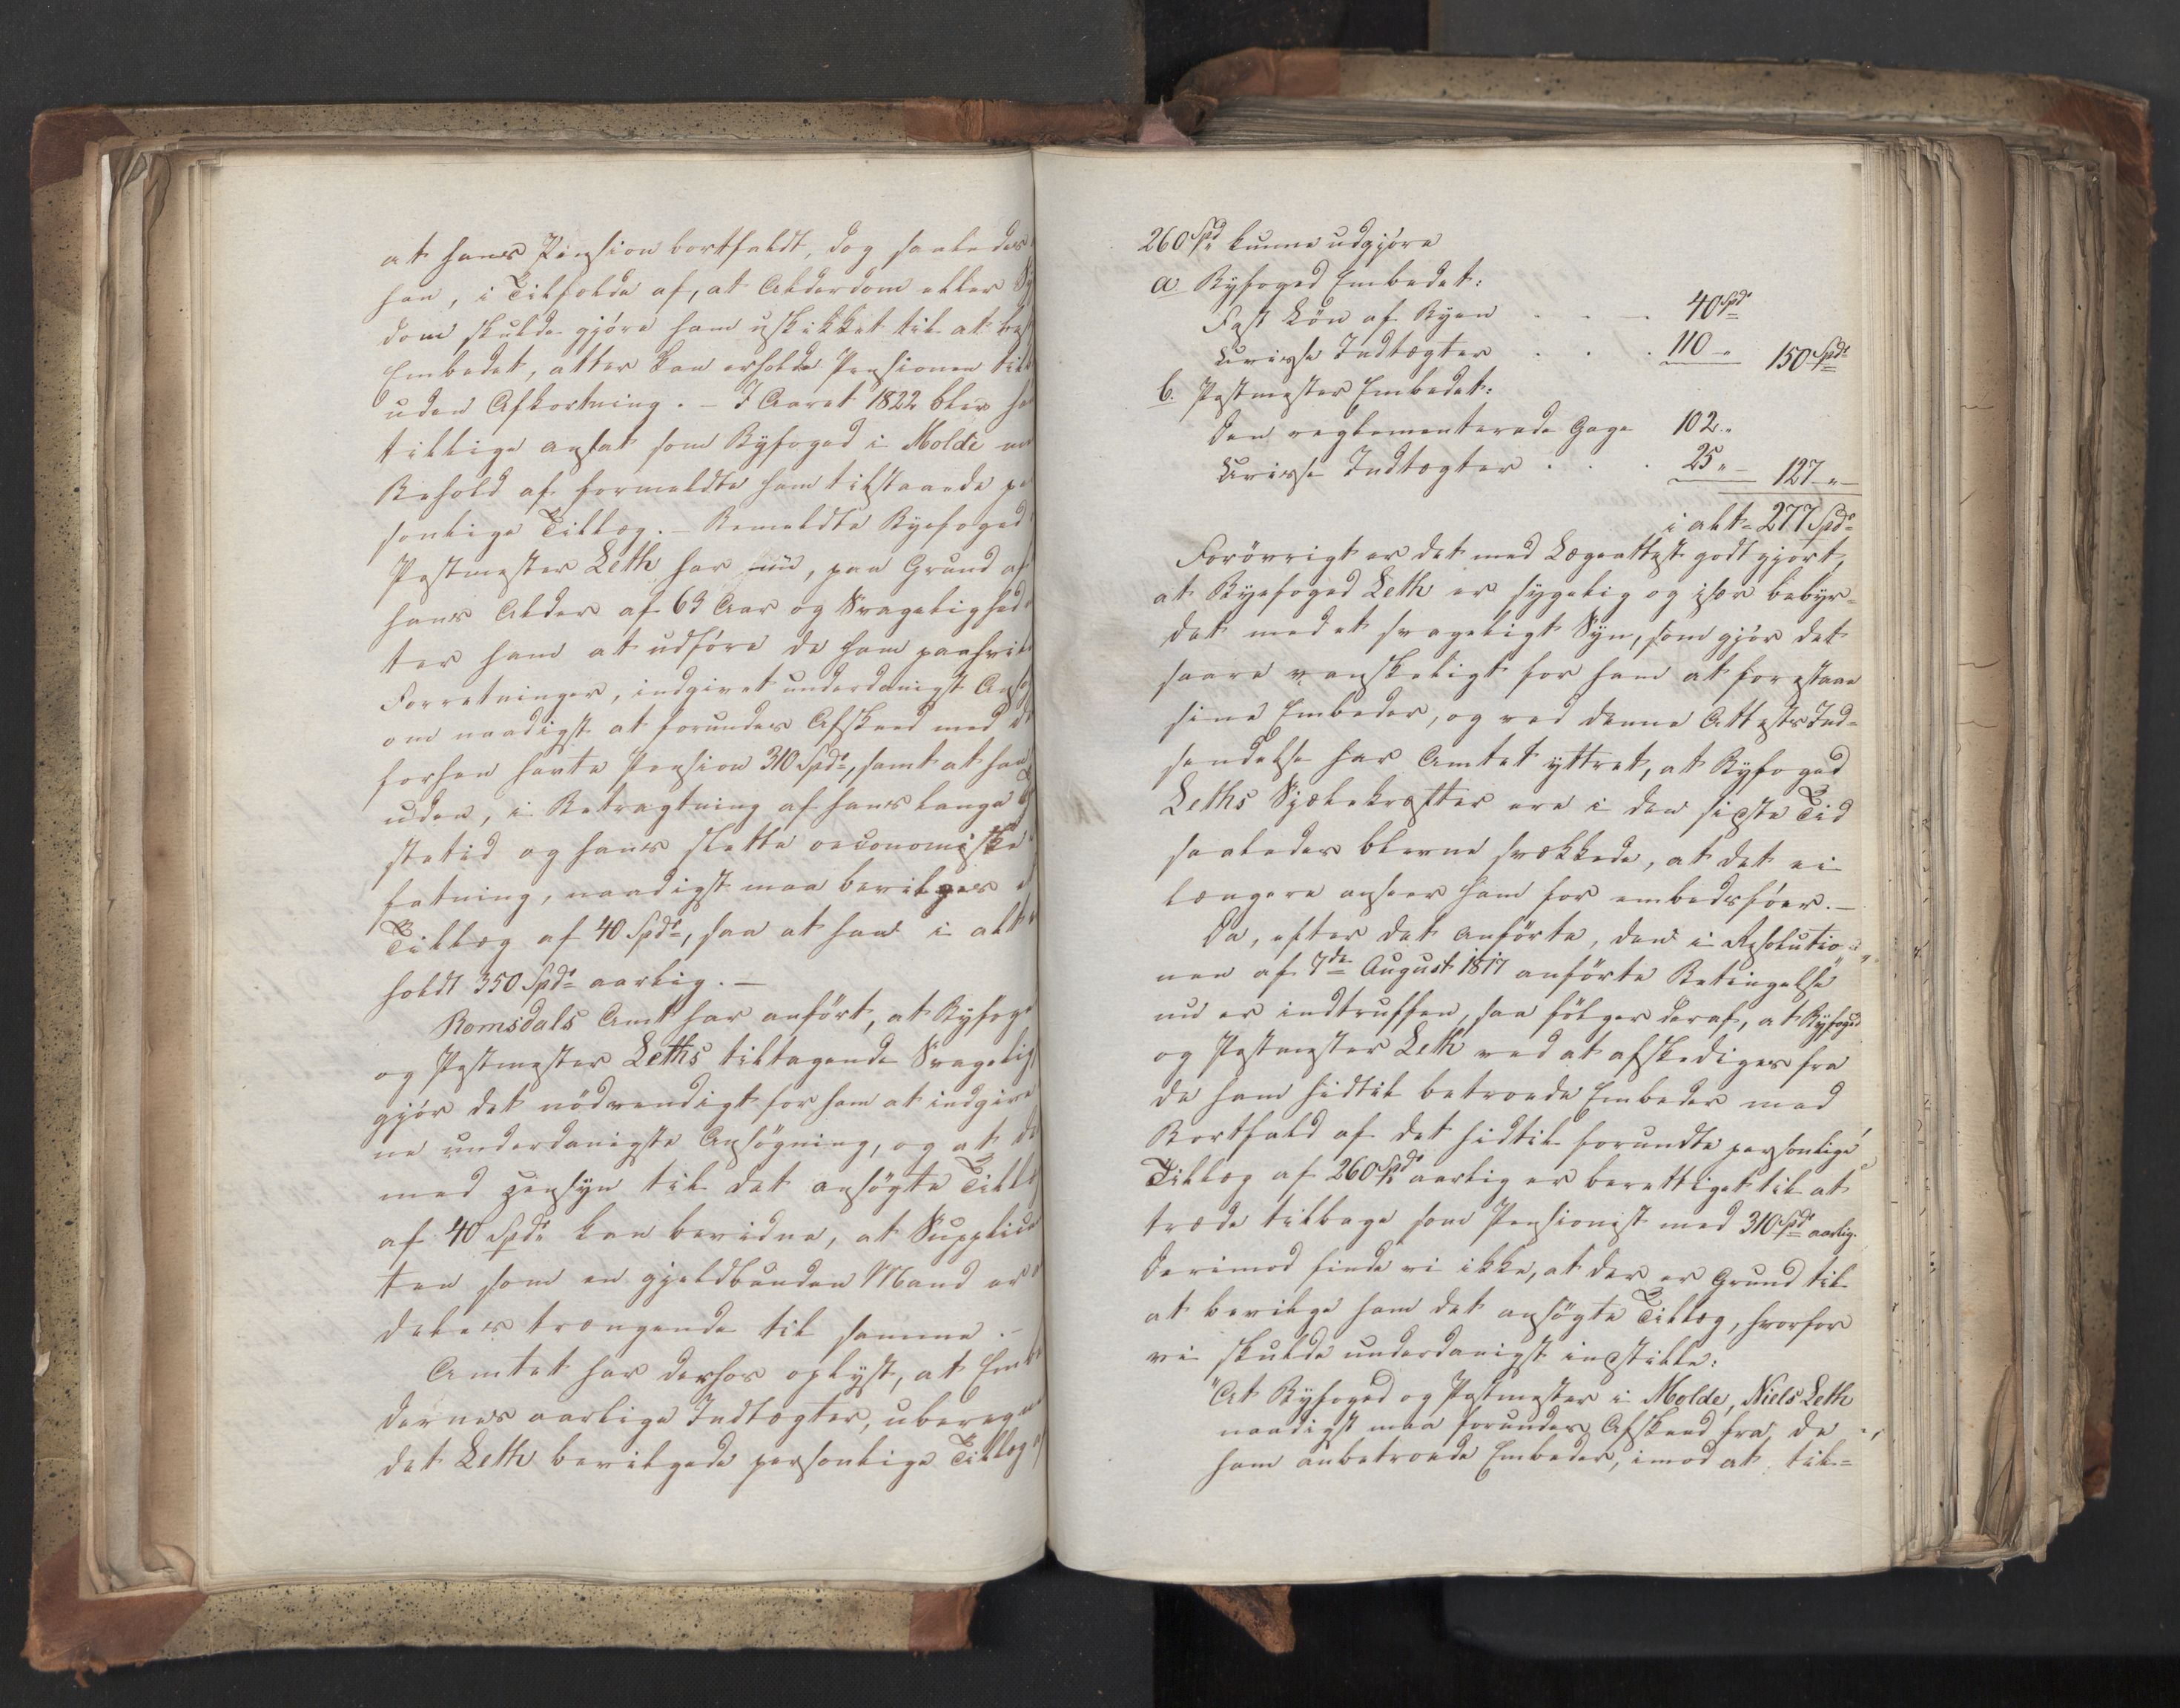 at hans Pension bortfaldt, dog saaledes
han, i Tilfælde af, at Alderdom eller Sy
dom skulde gjøre ham uskikket til at best
Embedet, atter kan erholde Pensionen till
uden Afkortning. – I Aaret 1822 blev ha
tillige ansat som Byfoged i Molde m
Behold af formeldte ham tilstaaede pe
sonlige Tillæg. – Bemeldte Byefoged
Postmester Leth har nu, paa Grund af
hans Alder af 63 Aar og Svagelighed
ter ham at udføre de ham paahvil
Forretninger, indgivet underdanigst Ansø
om naadigst at forundes Afskeed med d
forhen havte Pension 310 Spd., samt at han
uden, i Betragtning af hans lange
stetid og hans slette oeconomiske
fatning, naadigst maa bevilges et
Tillæg af 40 Spd., saa at han i alt
holdt 350 Spd. aarlig. –
Romsdals Amt har anført, at Byfoge
og Postmester Leths tiltagende Svageligh
gjør det nødvendigt for ham at indgive
ne underdanigste Ansøgning, og at de
med Hensyn til det ansøgte Tillæ
af 40 Spd. kan bevidne, at Supplica
ten som en gjældbunden Mand er
deles trængende til samme. –
Amtet har derhos oplyst, at Emb
dernes aarlige Indtægter, uberegn
det Leth bevilgede personlige Tillæg af
260 Spd. kunne udgjøre
a. Byfoged Embedet:
Fast Løn af Byen . . . 40 Spd.
Uvisse Indtægter . . . 110 „ 150 Spd.
b. Postmester Embedet:
Den reglementerede Gage 102 „
Uvisse Indtægter . . . 25 „ – 127 „ –
i alt 277 Spd.
Forøvrigt er det med Lægeattest godtgjort,
at Byefoged Leth er sygelig og især bebyr=
det med et svageligt Syn, som gjør det
saare vanskeligt for ham at forestaae
sine Embeder, og ved denne Attests Ind=
sendelse har Amtet yttret, at Byfoged
Leths Sjælekræfter ere i den sidste Tid
saaledes blevne svækkede, at det ei
længere anseer ham for embedsføer. –
Da, efter det anførte, den i Resolutio=
nen af 7de August 1817 anførte Betingelse
nu er indtruffen, saa følger deraf, at Byfoged
og Postmester Leth ved at afskediges fra
de ham hidtil betroede Embeder med
Bortfald af det hidtil forundte personlige
Tillæg af 260 Spd. aarlig er berettiget til at
træde tilbage som Pensionist med 310 Spd. aarlig.
Derimod finde vi ikke, at der er Grund til
at bevilge ham det ansøgte Tillæg, hvorfor
vi skulde underdanigst indstille:
"At Byfoged og Postmester i Molde, Niels Leth
naadigst maa forundes Afskeed fra de
ham anbetroede Embeder, imod at til=